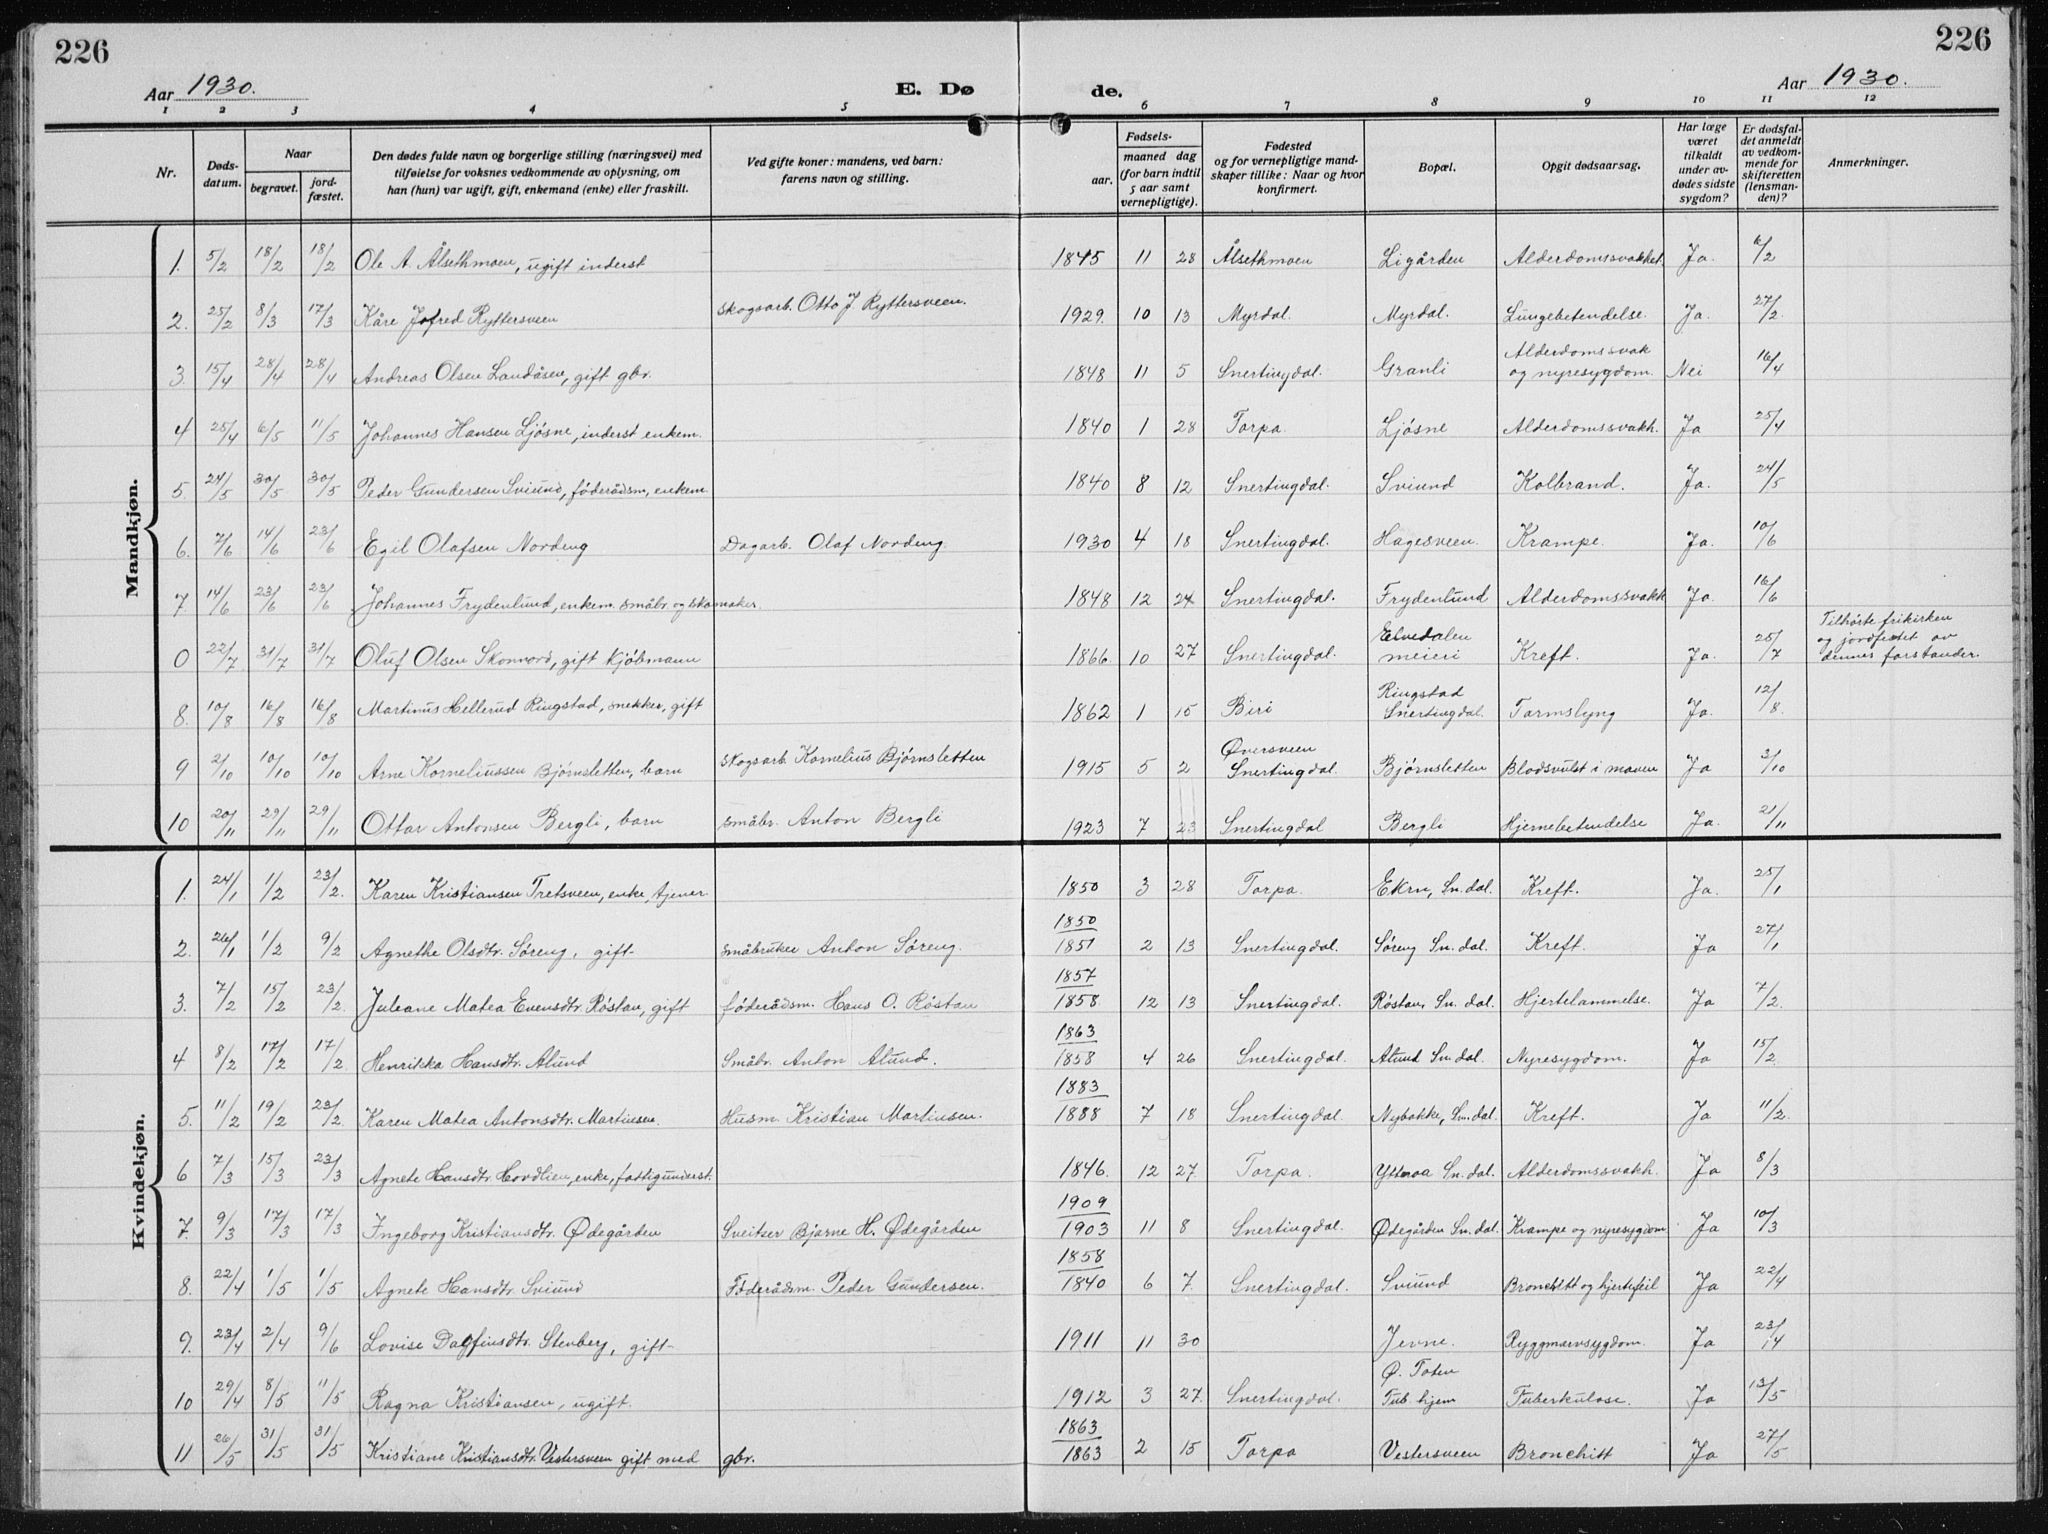 226
226
Aar 1930.
E. Dø
de.
Aar 1930.
1 2 3 4 5 6 7 8 9 10 11 12
Nr.
Døds-
datum.
Naar
begravet.
jord-
fæstet.
Den dødes fulde navn og borgerlige stilling (næringsvei) med
tilføielse for voksnes vedkommende av oplysning, om
han (hun) var ugift, gift, enkemand (enke) eller fraskilt.
Ved gifte koner: mandens, ved barn:
farens navn og stilling.
Fødsels-
aar.
maaned dag
(for barn indtil
5 aar samt
vernepligtige).
Fødested
og for vernepligtige mand-
skaper tillike: Naar og hvor
konfirmert.
Bopæl.
Opgit dødsaarsag.
Har læge
været
tilkaldt
under av-
dødes sidste
sygdom?
Er dødsfal-
det anmeldt
av vedkom-
mende for
skifteretten
(lensman-
den)?
Anmerkninger.
Mandkjøn.
1. 5/2 18/2 18/2 Ole A. Ålsethmoen, ugift inderst 1845 11 28 Ålsethmoen Ligården Alderdomssvakhet Ja. 6/2
2. 25/2 8/3 17/3 Kåre Jofred Ryttersveen skogsarb. Otto J Ryttersveen. 1929. 10 13 Myrdal. Myrdal. Lungebetendelse. Ja. 27/2.
3. 15/4 28/4 28/4 Andreas Olsen Landåsen, gift gbr. 1848 11 5 Snertingdal. Granli Alderdomssvak
og nyresygdom. Nei 16/4
4 25/4 6/5 11/5 Johannes Hansen Ljøsne, inderst enkem. 1840 1 28 Torpa. Ljøsne Alderdomssvakh. Ja 25/4
5. 24/5 30/5 30/5 Peder Gundersen Sviund, føderådsm, enkem. 1840 8 12 Snertingdal. Sviund Kolbrand. Ja. 24/5
6. 7/6 14/6 23/6 Egil Olafsen Nordeng Dagarb. Olaf Nordeng. 1930 4 18 Snertingdal. Hagesveen. Krampe. Ja. 10/6
7. 14/6 23/6 23/6 Johannes Frydenlund, enkem. småbr. og skomaker. 1848 12 24 Snertingdal. Frydenlund Alderdomssvakh Ja. 16/6
0 22/7 31/7 31/7 Oluf Olsen Skonnord, gift kjøbmann 1866 10 27 Snertingdal. Elvedalen
meieri Kreft. Ja. 25/7 Tilhørte frikirken
og jordfestet av
dennes forstander.
8. 10/8 16/8 16/8 Martinus Hellerud Ringstad, snekker, gift 1862 1 15 Biri Ringstad
Snertingdal. Tarmslyng Ja. 12/8.
9 2/10 10/10 10/10 Arne Korneliussen Bjørnsletten, barn skogsarb. Kornelius Bjørnsletten 1915 5 2 Øversveen
Snertingdal. Bjørnsletten Blodsvulst i maven Ja 3/10
10 20/11 29/11 29/11 Ottar Antonsen Bergli, barn småbr. Anton Bergli 1923 7 23 Snertingdal Bergli Hjernebetendelse Ja. 21/11
Kvindekjøn.
1. 24/1 1/2 23/2. Karen Kristiansen Tretsveen, enke, tjener. 1850 3 28 Torpa. Ekrn, Sn. dal. Kreft. Ja. 25/1
2. 26/1 1/2 9/2 Agnethe Olsdtr. Søreng, gift- småbruker Anton Søreng. 1850
1851 2 13 Snertingdal. Søreng Sn. dal. Kreft. Ja 27/1
3. 7/2 15/2 23/2. Juleane Matea Evensdtr. Røstau, gift føderådsm. Hans O. Røstau 1857
1858 12 13 Snertingdal. Røstau, Sn. dal. Hjertelammelse. Ja 7/2.
4 8/2 17/2 17/2. Henrikka Hansdtr. Alund Småbr. Anton Alund. 1863
1858 4 26 Snertingdal. Alund Sn. dal. Nyresygdom. Ja 15/2.
5. 11/2 19/2 23/2. Karen Matea Antonsdtr. Martinsen. Husm. Kristian Martinsen. 1883
1888 7 18 Snertingdal. Nybakke, Sn. dal Kreft. Ja 11/2.
6 7/3 15/3 23/3 Agnete Hansdtr. Hovdlien, enke, fattigunderst. 1846. 12 27. Torpa. Ytteroa Sn. dal. Alderdomssvakh. Ja 8/3
7. 9/3 17/3 17/3 Ingeborg Kristiansdtr. Ødegården Sveitser Bjarne H. Ødegården 1909
1903 11 8 Snertingdal. Ødegården Sn. dal. Krampe og nyresygdom Ja 10/3
8. 22/4 1/5 1/5 Agnete Hansdtr. Sviund Føderådsm. Peder Gundersen. 1858
1840 6 7. Snertingdal. Sviund Bronchitt og hjertefeil Ja 22/4
9. 23/4 2/4 9/6 Lovise Dagfinsdtr. Stenberg, gift- 1911 11 30 Jevne. Ryggmarvsygdom. Ja 23/4
10 29/4 8/5 11/5 Ragna Kristiansen, ugift. 1912 3 27. Snertingdal. Ø. Toten
Tub. hjem Tuberkulose. Ja 13/5
11 26/5 31/5 31/5 Kristiane Kristiansdtr. Vestersveen gift med gbr. 1863
1863 2 15 Torpa Vestersveen Bronchitt Ja 27/5